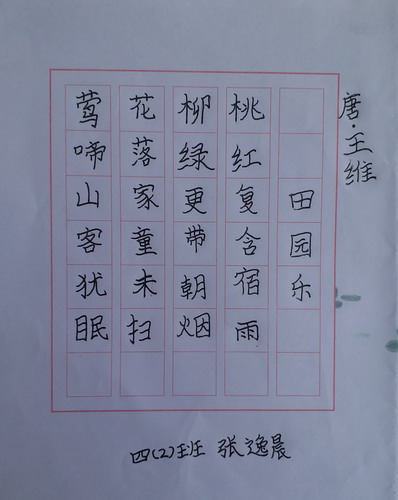 唐·王维
田园乐
桃红复含宿雨
柳绿更带朝烟
花落家童未扫
莺啼山客犹眠
四(2)班 张逸晨